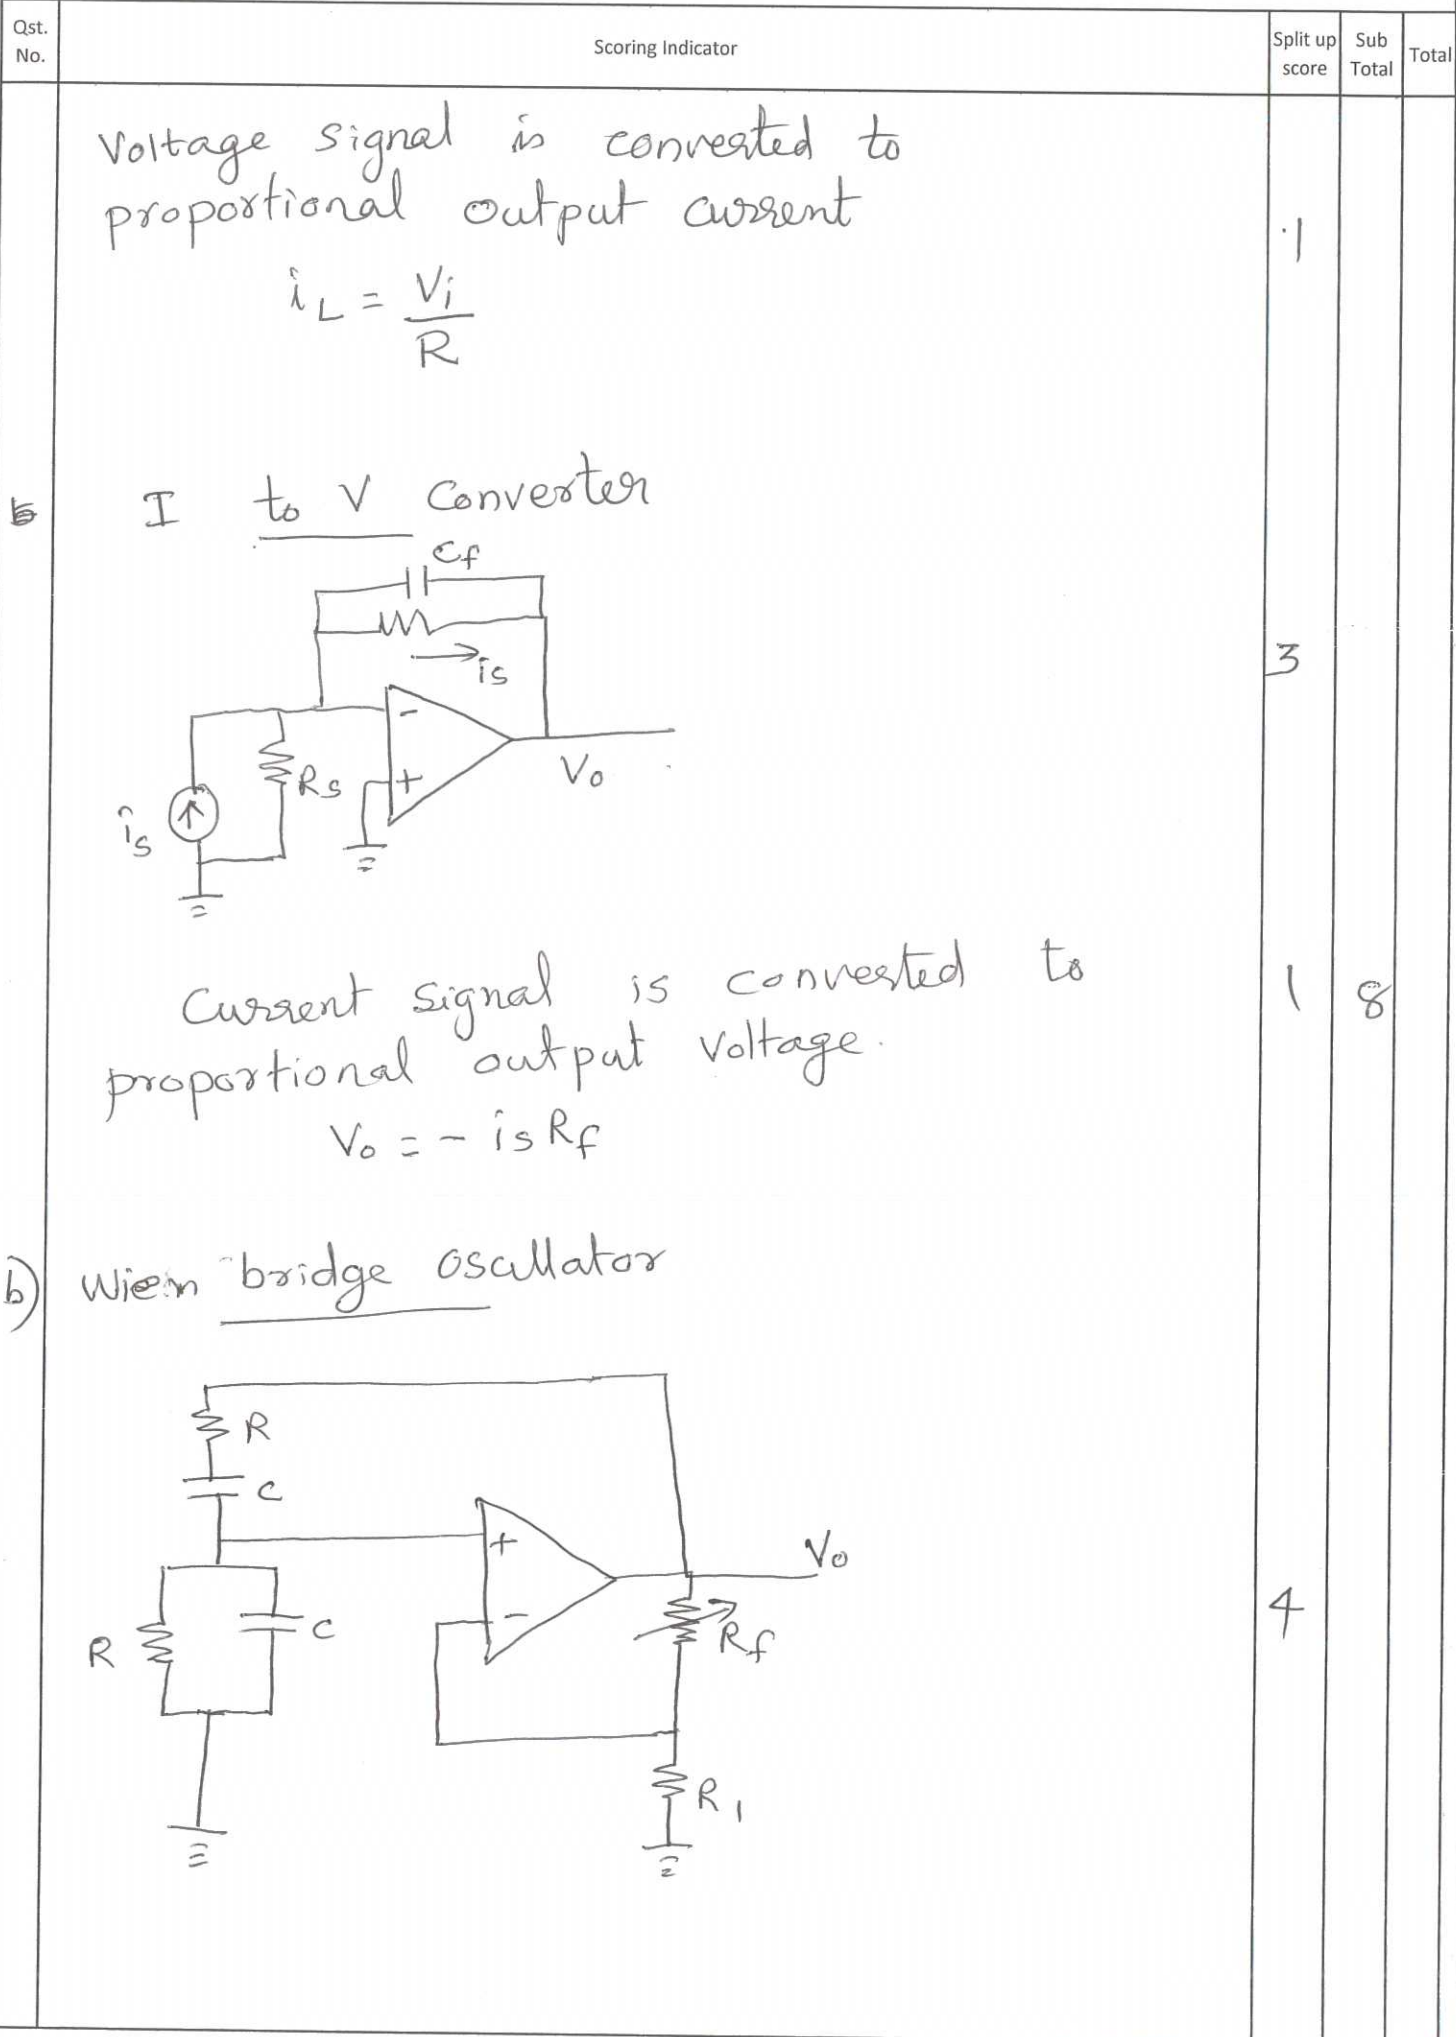 Qst. No.
Scoring Indicator
Split up score
Sub Total
Total
Voltage signal is converted to
proportional output current
.1
iL = Vi
R
I to V Converter
Cf
is
3
-
+
Rs
Vo
is
Current signal is converted to
1
8
proportional output voltage.
Vo = - is Rf
b)
Wien bridge oscillator
R
C
+
Vo
-
Rf
4
R
C
R1